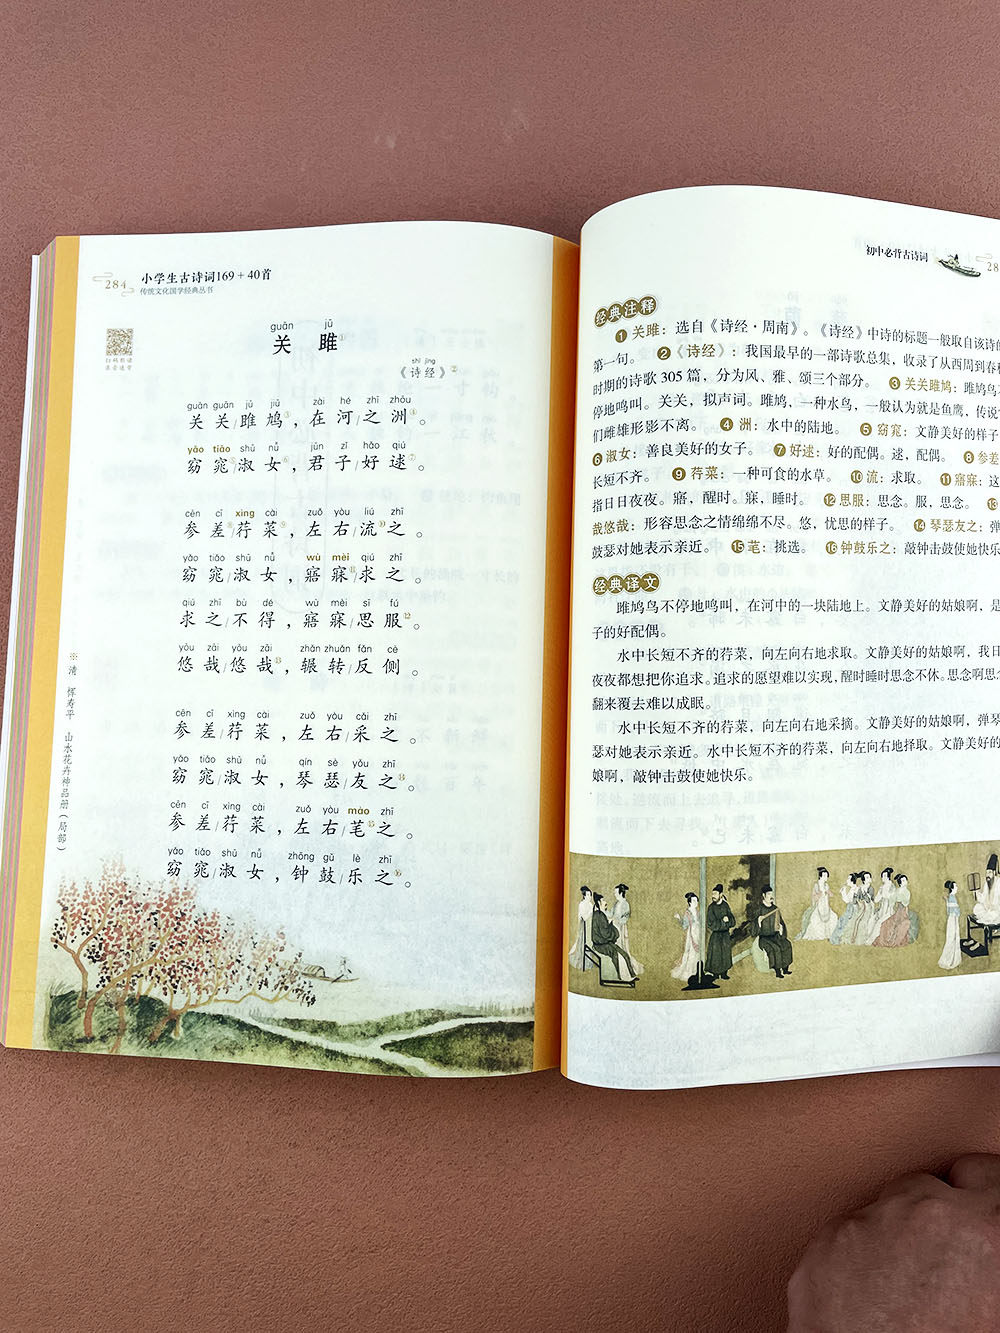 284
小学生古诗词169+40首
传统文化国学经典丛书
guān jū
关 雎①
shī jīng
《诗经》②
guān guān jū jiū zài hé zhī zhōu
关关/雎鸠③，在河/之洲④。
yǎo tiǎo shū nǚ jūn zǐ hǎo qiú
窈窕⑤淑女⑥，君子/好逑⑦。
cēn cī xìng cài zuǒ yòu liú zhī
参差⑧/荇菜⑨，左右/流⑩之。
yǎo tiǎo shū nǚ wù mèi qiú zhī
窈窕/淑女，寤寐⑪/求之。
qiú zhī bù dé wù mèi sī fú
求之/不得，寤寐/思服⑫。
yōu zāi yōu zāi zhǎn zhuǎn fǎn cè
悠哉/悠哉⑬，辗转/反侧。
cēn cī xìng cài zuǒ yòu cǎi zhī
参差/荇菜，左右/采之。
yǎo tiǎo shū nǚ qín sè yǒu zhī
窈窕/淑女，琴瑟/友之⑭。
cēn cī xìng cài zuǒ yòu mào zhī
参差/荇菜，左右/芼⑮之。
yǎo tiǎo shū nǚ zhōng gǔ lè zhī
窈窕/淑女，钟鼓/乐之⑯。
※清 恽寿平 山水花卉神品册（局部）
初中必背古诗词
28
经典注释
❶关雎：选自《诗经·周南》。《诗经》中诗的标题一般取自该诗的
第一句。❷《诗经》：我国最早的一部诗歌总集，收录了从西周到春秋
时期的诗歌305篇，分为风、雅、颂三个部分。❸关关雎鸠：雎鸠鸟不
停地鸣叫。关关，拟声词。雎鸠，一种水鸟，一般认为就是鱼鹰，传说它
们雌雄形影不离。❹洲：水中的陆地。❺窈窕：文静美好的样子
❻淑女：善良美好的女子。❼好逑：好的配偶。逑，配偶。❽参差
长短不齐。❾荇菜：一种可食的水草。❿流：求取。⓫寤寐：这
指日日夜夜。寤，醒时。寐，睡时。⓬思服：思念。服，思念。⓭
哉悠哉：形容思念之情绵绵不尽。悠，忧思的样子。⓮琴瑟友之：弹
鼓瑟对她表示亲近。⓯芼：挑选。⓰钟鼓乐之：敲钟击鼓使她快乐
经典译文
雎鸠鸟不停地鸣叫，在河中的一块陆地上。文静美好的姑娘啊，是
子的好配偶。
水中长短不齐的荇菜，向左向右地求取。文静美好的姑娘啊，我日
夜夜都想把你追求。追求的愿望难以实现，醒时睡时思念不休。思念啊思
翻来覆去难以成眠。
水中长短不齐的荇菜，向左向右地采摘。文静美好的姑娘啊，弹琴
瑟对她表示亲近。水中长短不齐的荇菜，向左向右地择取。文静美好的
娘啊，敲钟击鼓使她快乐。